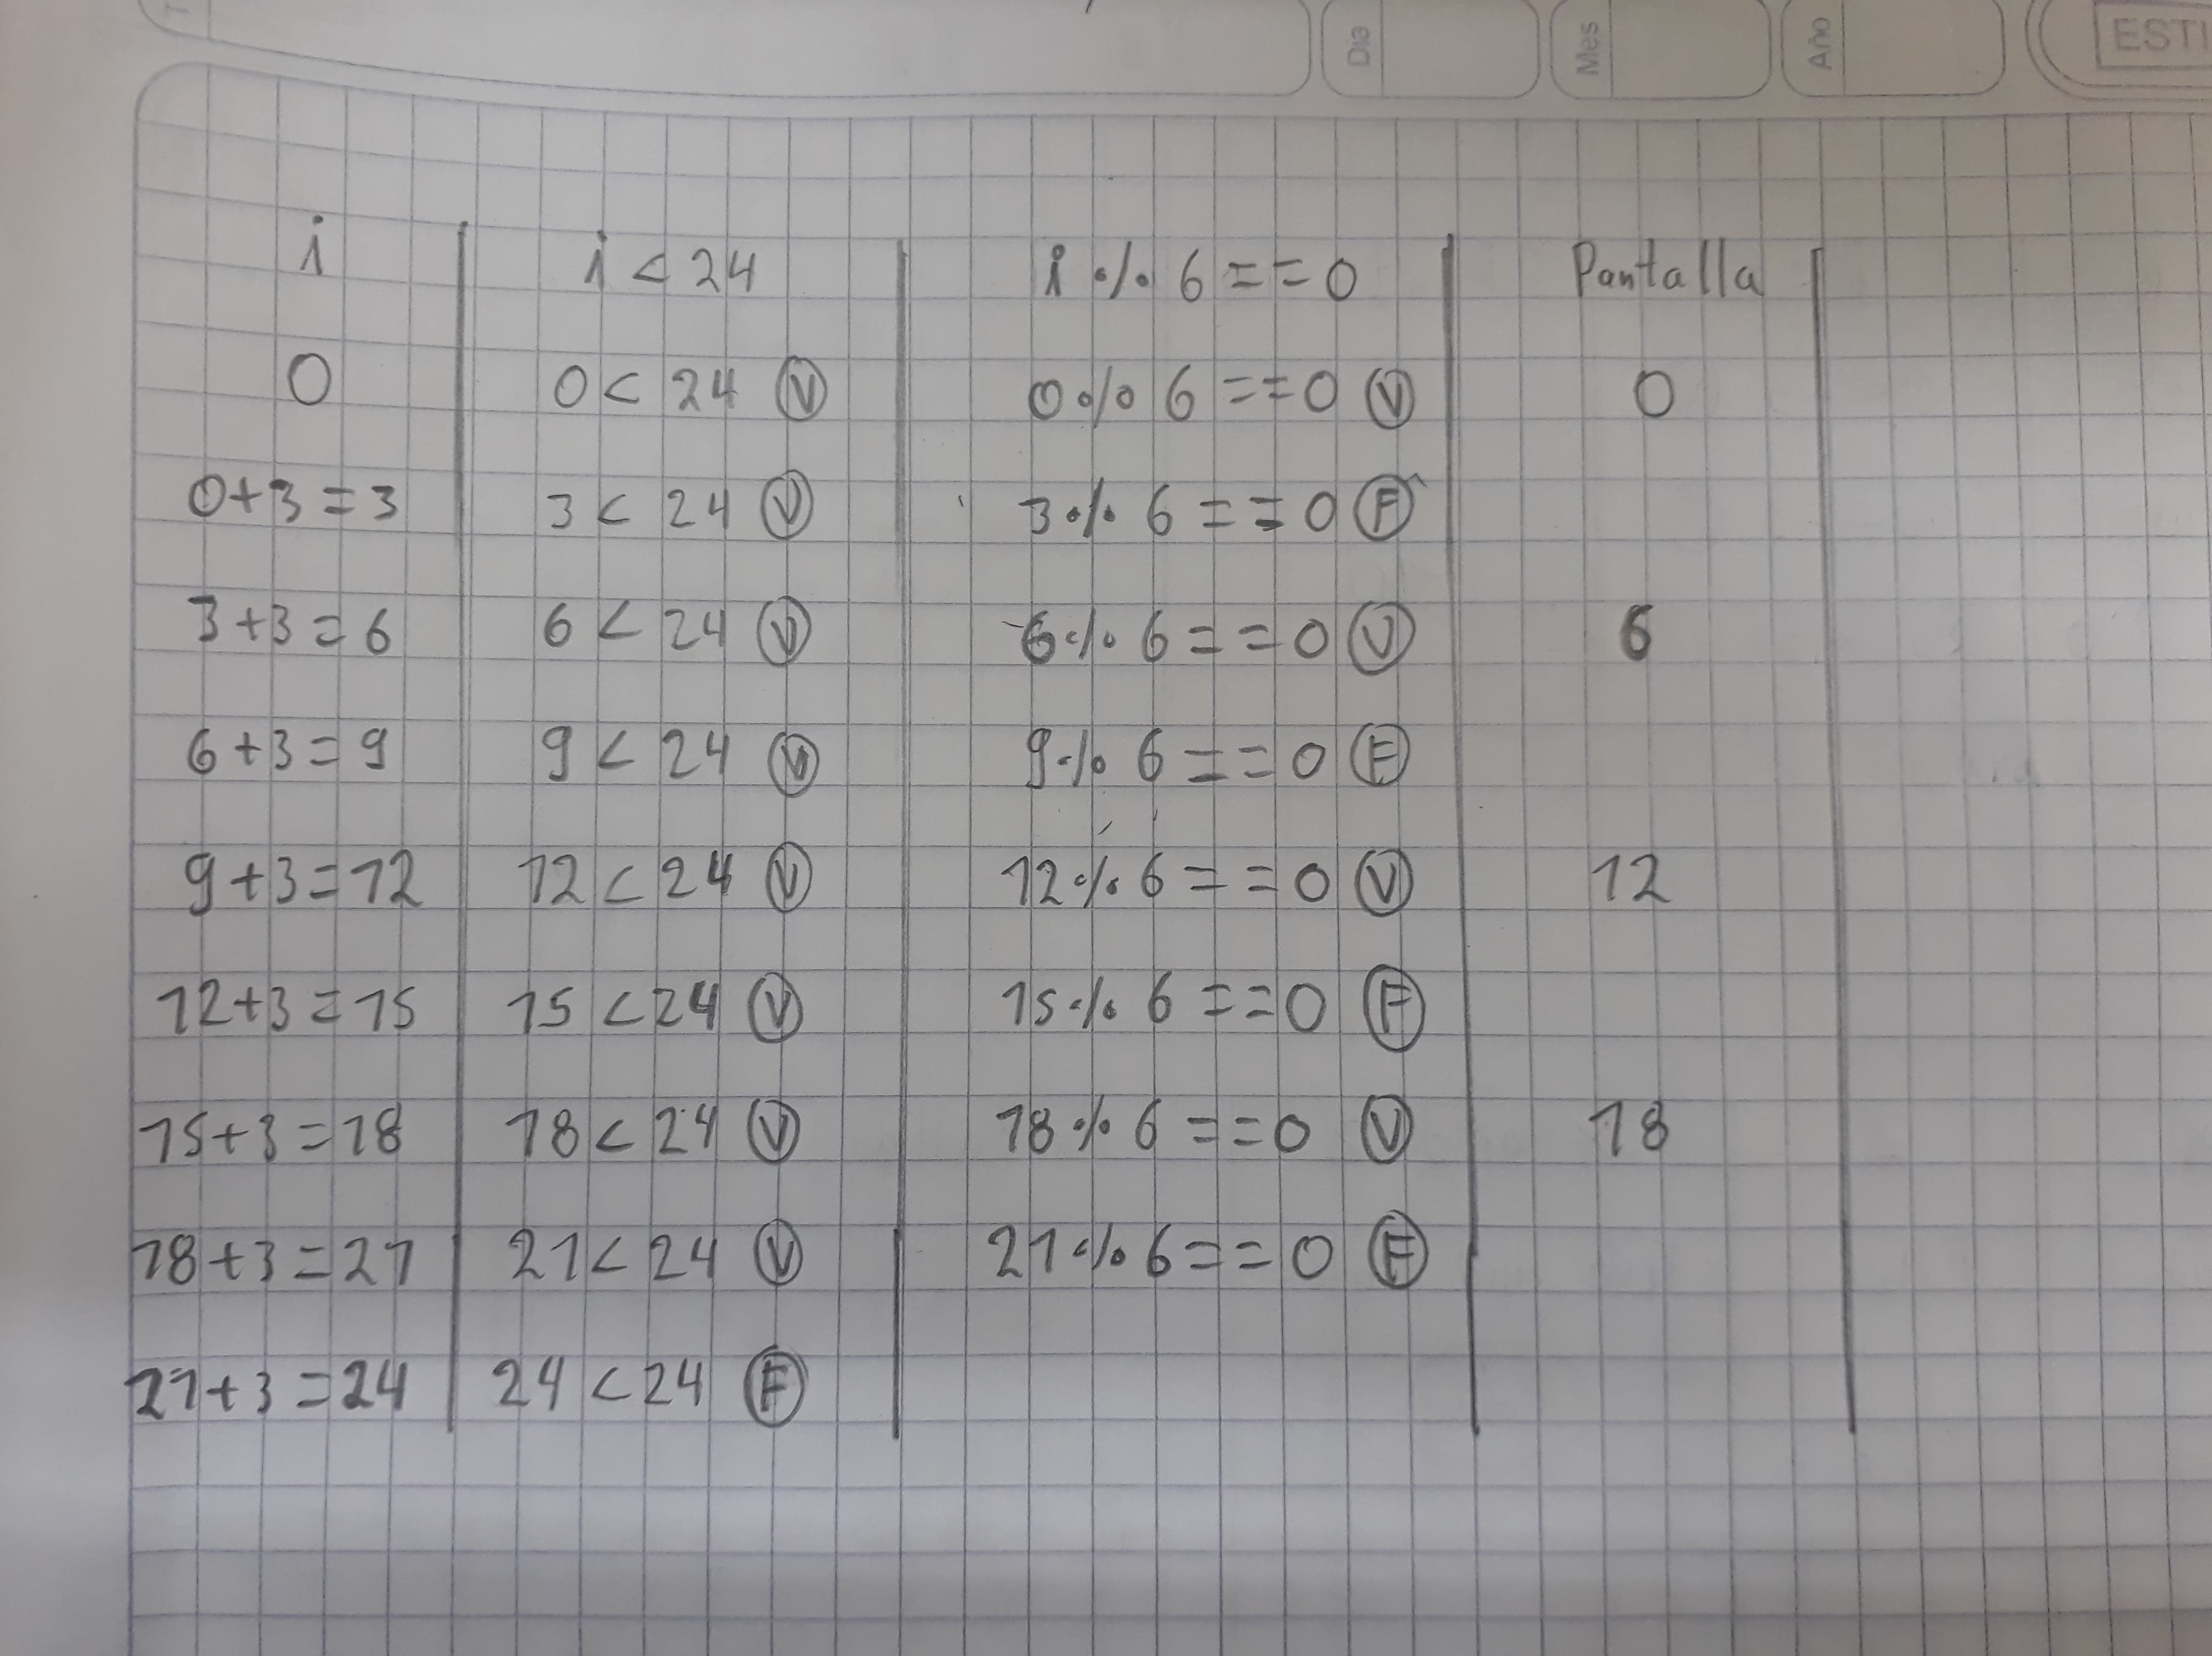 Dia Mes Año ESTI
i i < 24 i % 6 == 0 Pantalla
0 0 < 24 V 0 % 6 == 0 V 0
0+3=3 3 < 24 V 3 % 6 == 0 F
3+3=6 6 < 24 V 6 % 6 == 0 V 6
6+3=9 9 < 24 V 9 % 6 == 0 F
9+3=12 12 < 24 V 12 % 6 == 0 V 12
12+3=15 15 < 24 V 15 % 6 == 0 F
15+3=18 18 < 24 V 18 % 6 == 0 V 18
18+3=21 21 < 24 V 21 % 6 == 0 F
21+3=24 24 < 24 F